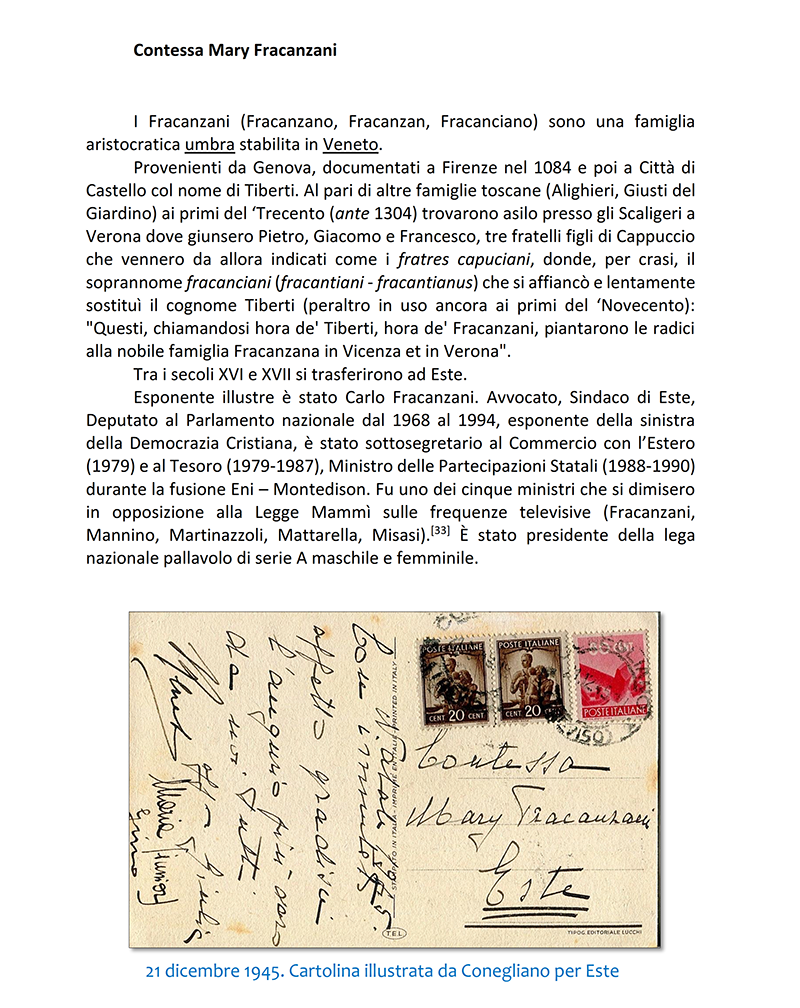 Contessa Mary Fracanzani
I Fracanzani (Fracanzano, Fracanzan, Fracanciano) sono una famiglia
aristocratica umbra stabilita in Veneto.
Provenienti da Genova, documentati a Firenze nel 1084 e poi a Città di
Castello col nome di Tiberti. Al pari di altre famiglie toscane (Alighieri, Giusti del
Giardino) ai primi del ‘Trecento (ante 1304) trovarono asilo presso gli Scaligeri a
Verona dove giunsero Pietro, Giacomo e Francesco, tre fratelli figli di Cappuccio
che vennero da allora indicati come i fratres capuciani, donde, per crasi, il
soprannome fracanciani (fracantiani - fracantianus) che si affiancò e lentamente
sostituì il cognome Tiberti (peraltro in uso ancora ai primi del ‘Novecento):
"Questi, chiamandosi hora de' Tiberti, hora de' Fracanzani, piantarono le radici
alla nobile famiglia Fracanzana in Vicenza et in Verona".
Tra i secoli XVI e XVII si trasferirono ad Este.
Esponente illustre è stato Carlo Fracanzani. Avvocato, Sindaco di Este,
Deputato al Parlamento nazionale dal 1968 al 1994, esponente della sinistra
della Democrazia Cristiana, è stato sottosegretario al Commercio con l’Estero
(1979) e al Tesoro (1979-1987), Ministro delle Partecipazioni Statali (1988-1990)
durante la fusione Eni – Montedison. Fu uno dei cinque ministri che si dimisero
in opposizione alla Legge Mammì sulle frequenze televisive (Fracanzani,
Mannino, Martinazzoli, Mattarella, Misasi).[33] È stato presidente della lega
nazionale pallavolo di serie A maschile e femminile.
POSTE ITALIANE
CENT 20 CENT
POSTE ITALIANE
CENT 20 CENT
POSTE ITALIANE
Contessa
Mary Fracanzani
Este
Con
affetto gradisci
l'augurio
tutti
Maria Junior
STAMPATO IN ITALIA - IMPRIMÉ EN ITALIE - PRINTED IN ITALY
TEL
TIPOG EDITORIALE LUCCHI
21 dicembre 1945. Cartolina illustrata da Conegliano per Este